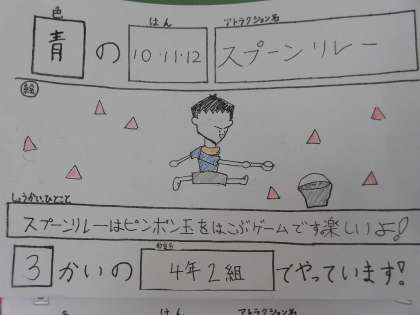 色 はん アトラクション名
青の 10・11・12 スプーンリレー
絵
しょうかいひとこと
スプーンリレーはピンポン玉をはこぶゲームです楽しいよ!
3かいの 4年2組 でやっています!
はん アトラクション名